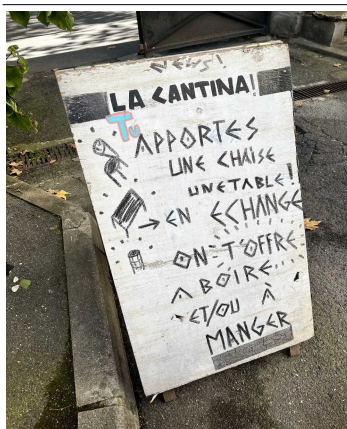 NEWS!
LA CANTINA!
Tu APPORTES
UNE CHAISE
UNE TABLE!
→ EN ECHANGE
ON T'OFFRE
A BOIRE...
ET/OU À
MANGER